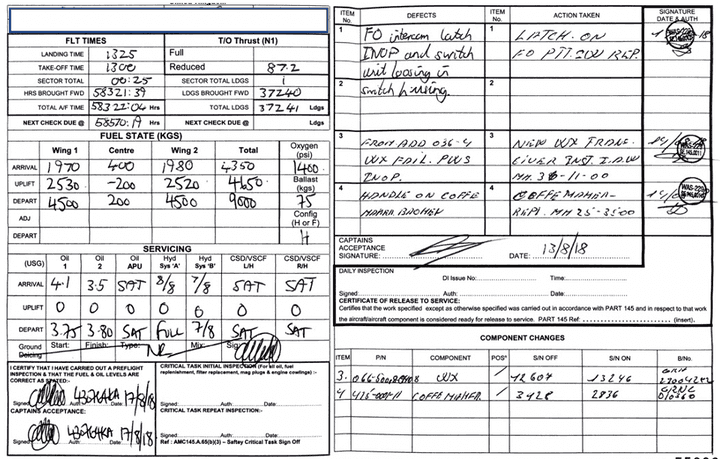 FLT TIMES T/O Thrust (N1)
LANDING TIME 1325 Full
TAKE-OFF TIME 1300 Reduced 87.2
SECTOR TOTAL 00:25 SECTOR TOTAL LDGS 1
HRS BROUGHT FWD 58321:39 LDGS BROUGHT FWD 37240
TOTAL A/F TIME 58322:04 Hrs TOTAL LDGS 37241 Ldgs
NEXT CHECK DUE @ 58570:19 Hrs NEXT CHECK DUE @ Ldgs
FUEL STATE (KGS)
Wing 1 Centre Wing 2 Total Oxygen (psi)
ARRIVAL 1970 400 1980 4350 1400
UPLIFT 2530 -200 2520 4650 Ballast (kgs)
DEPART 4500 200 4500 9000 75
ADJ Config (H or F)
DEPART H
SERVICING
(USG) Oil 1 Oil 2 Oil APU Hyd Sys 'A' Hyd Sys 'B' CSD/VSCF L/H CSD/VSCF R/H
ARRIVAL 4.1 3.5 SAT 8/8 7/8 SAT SAT
UPLIFT 0 0 0 0 0 0 0
DEPART 3.75 3.80 SAT FULL 7/8 SAT SAT
Ground Deicing Start: Finish: Type: Sig:
I CERTIFY THAT I HAVE CARRIED OUT A PREFLIGHT
INSPECTION & THAT THE FUEL & OIL LEVELS ARE
CORRECT AS STATED:-
Signed: Auth: Date: 17/8/18
CAPTAINS ACCEPTANCE:
Signed: Auth: Date: 17/8/18
CRITICAL TASK INITIAL INSPECTION (For all oil, fuel
replenishment, filter replacement, mag plugs & engine cowlings):-
Signed: Auth: Date:
CRITICAL TASK REPEAT INSPECTION:-
Signed: Auth: Date:
Ref : AMC145.A.65(b)(3) – Saftey Critical Task Sign Off
ITEM No. DEFECTS ITEM No. ACTION TAKEN SIGNATURE DATE & AUTH
1 FO intercom latch 1 LATCH ON
INOP and switch FO PTT. SW REP.
unit loosing in
2 switch housing. 2
3 FROM ADD 036-4 3 NEW WX TRANS-
WX FAIL. PWS CIVER INST. I.A.W
INOP. MM.
4 HANDLE ON COFFE 4 COFFE MAKER
REPL. MM 25-35-00
CAPTAINS
ACCEPTANCE
SIGNATURE: DATE: 13/8/18
DAILY INSPECTION
DI Issue No: Time:
Signed: Auth: Date:
CERTIFICATE OF RELEASE TO SERVICE:
Certifies that the work specified except as otherwise specified was carried out in accordance with PART 145 and in respect to that work
the aircraft/aircraft component is considered ready for release to service. PART 145 Ref: (insert).
COMPONENT CHANGES
ITEM P/N DESCRIPTION POS" S/N OFF S/N ON B/No.
3. WX / 12607 13246
4 COFFE MAKER. / 3428 2836